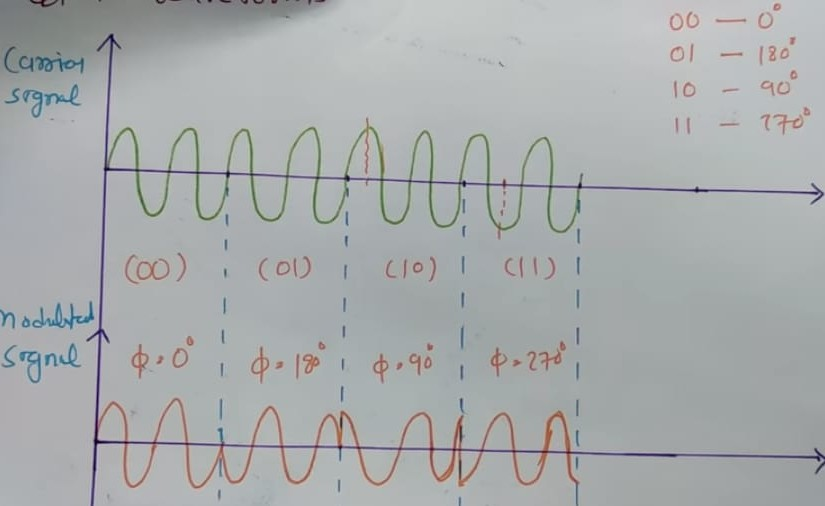 00 — 0°
01 — 180°
10 — 90°
11 — 270°
Carrier
signal
(00) (01) (10) (11)
modulated
signal
ϕ = 0° ϕ = 180° ϕ = 90° ϕ = 270°